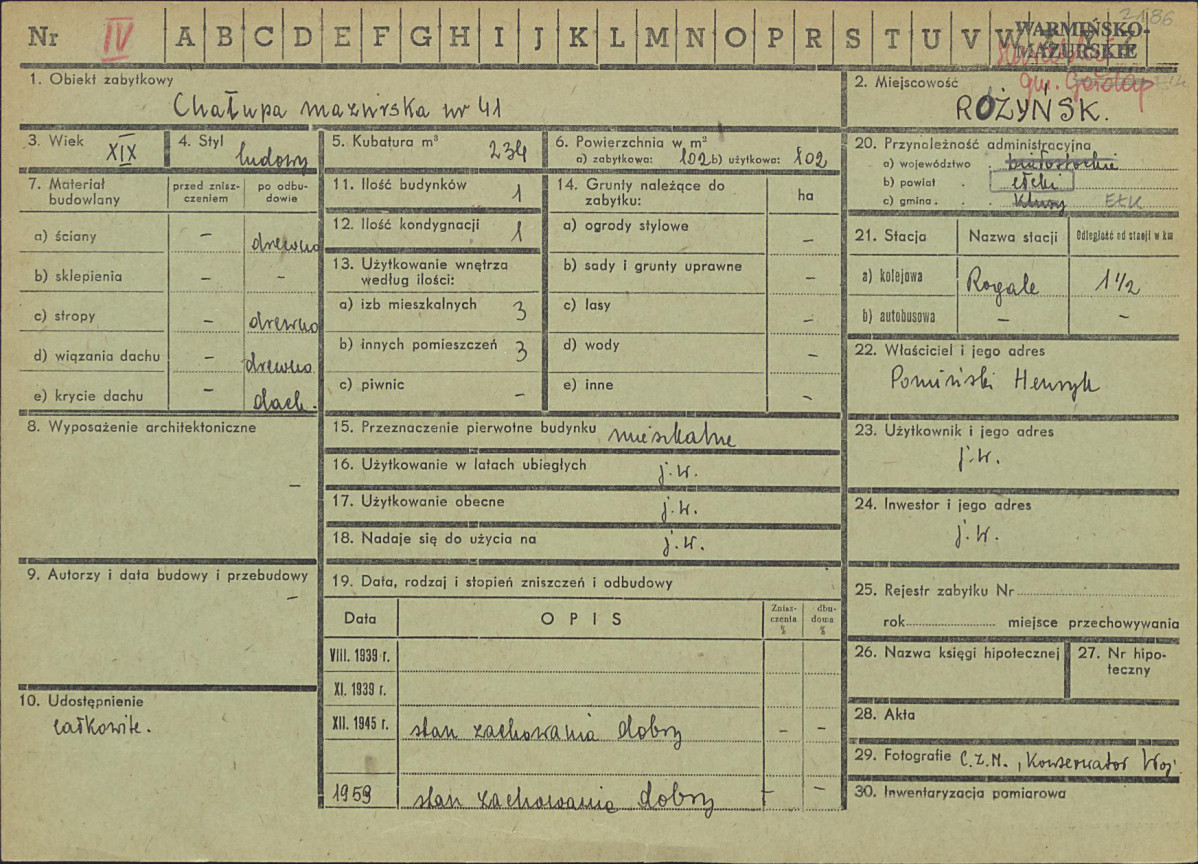 Nr IV A B C D E F G H I J K L M N O P R S T U V W
2186
WARMIŃSKO-
MAZURSKIE
gm. Gołdap
1. Obiekt zabytkowy
Chałupa mazurska nr 41
2. Miejscowość
ROŻYŃSK.
3. Wiek XIX
4. Styl ludowy
5. Kubatura m³ 234
6. Powierzchnia w m²
a) zabytkowa: 102 b) użytkowa: 102
20. Przynależność administracyjna
a) województwo białostockie
b) powiat . ełcki
c) gmina . . Kluzy EŁK
7. Materiał budowlany
przed znisz-
czeniem
po odbu-
dowie
a) ściany – drewno
b) sklepienia – –
c) stropy – drewno
d) wiązania dachu – drewno
e) krycie dachu – dach.
11. Ilość budynków 1
12. Ilość kondygnacji 1
13. Użytkowanie wnętrza
według ilości:
a) izb mieszkalnych 3
b) innych pomieszczeń 3
c) piwnic –
14. Grunty należące do
zabytku:
ha
a) ogrody stylowe –
b) sady i grunty uprawne –
c) lasy –
d) wody –
e) inne –
21. Stacja Nazwa stacji Odległość od stacji w km
a) kolejowa Rogale 1 1/2
b) autobusowa – –
22. Właściciel i jego adres
Pomiński Henryk
8. Wyposażenie architektoniczne
–
15. Przeznaczenie pierwotne budynku mieszkalne
16. Użytkowanie w latach ubiegłych j.w.
17. Użytkowanie obecne j.w.
18. Nadaje się do użycia na j.w.
23. Użytkownik i jego adres
j.w.
24. Inwestor i jego adres
j.w.
9. Autorzy i data budowy i przebudowy
–
19. Data, rodzaj i stopień zniszczeń i odbudowy
Data OPIS
Znisz-
czenia
%
dbu-
dowa
%
VIII. 1939 r.
XI. 1939 r.
XII. 1945 r. stan zachowania dobry – –
1959 stan zachowania dobry – –
25. Rejestr zabytku Nr
rok miejsce przechowywania
26. Nazwa księgi hipotecznej
27. Nr hipo-
teczny
10. Udostępnienie
całkowite.
28. Akta
29. Fotografie C.Z.M., Konserwator Woj.
30. Inwentaryzacja pomiarowa